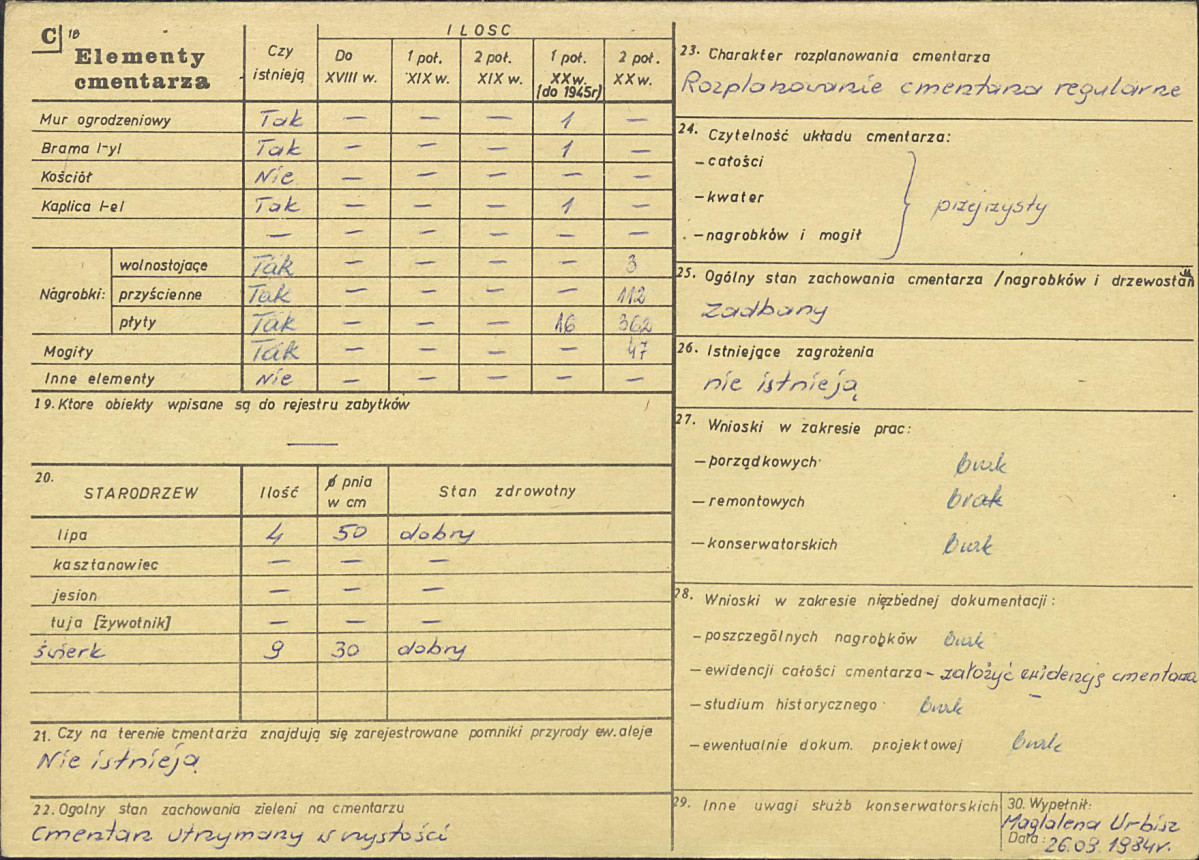 C 18
Elementy
cmentarza
Czy
istnieją
ILOSC
Do
XVIII w.
1 poł.
XIX w.
2 poł.
XIX w.
1 poł.
XX w.
[do 1945r]
2 poł.
XX w.
Mur ogrodzeniowy Tak — — — 1 —
Brama /-y/ Tak — — — 1 —
Kościół Nie — — — — —
Kaplica /-e/ Tak — — — 1 —
— — — — — —
Nagrobki: wolnostojące Tak — — — — 3
przyścienne Tak — — — — 112
płyty Tak — — — 16 362
Mogiły Tak — — — — 47
Inne elementy Nie — — — — —
19. Ktore obiekty wpisane są do rejestru zabytków
—
20. STARODRZEW Ilość ø pnia
w cm Stan zdrowotny
lipa 4 50 dobry
kasztanowiec — — —
jesion — — —
tuja [żywotnik] — — —
świerk 9 30 dobry
21. Czy na terenie cmentarza znajdują się zarejestrowane pomniki przyrody ew. aleje
Nie istnieją
22. Ogolny stan zachowania zieleni na cmentarzu
Cmentarz utrzymany w czystości
23. Charakter rozplanowania cmentarza
Rozplanowanie cmentarza regularne
24. Czytelność układu cmentarza:
— całości
— kwater
— nagrobków i mogił
przejrzysty
25. Ogólny stan zachowania cmentarza /nagrobków i drzewostan
zadbany
26. Istniejące zagrożenia
nie istnieją
27. Wnioski w zakresie prac:
— porządkowych brak
— remontowych brak
— konserwatorskich brak
28. Wnioski w zakresie niezbędnej dokumentacji:
— poszczególnych nagrobków brak
— ewidencji całości cmentarza - założyć ewidencję cmentarza
— studium historycznego brak
— ewentualnie dokum. projektowej brak
29. Inne uwagi służb konserwatorskich
30. Wypełnił:
Magdalena Urbisz
Data: 26.09.1984r.